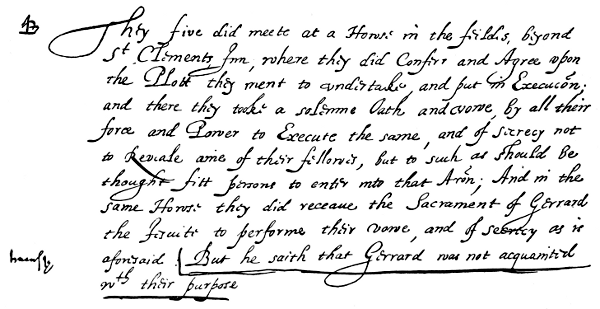 They five did meete at a Howse in the feildis, beyond
St. Clements Inn, where they did Conferr and Agree upon
the Plott they ment to vndertake, and put in Execucōn;
and there they tooke a solemne Oath and vowe, by all their
force and Power to Execute the same, and of secrecy not
to Reveale anie of their fellowes, but to such as should be
thought fitt persons to enter into that Acōn; And in the
same Howse they did receaue the Sacrament of Gerrard
the Jesuite to performe their vowe, and of secrecy as is
aforesaid. But he saith that Gerrard was not acquainted
wth their purpose